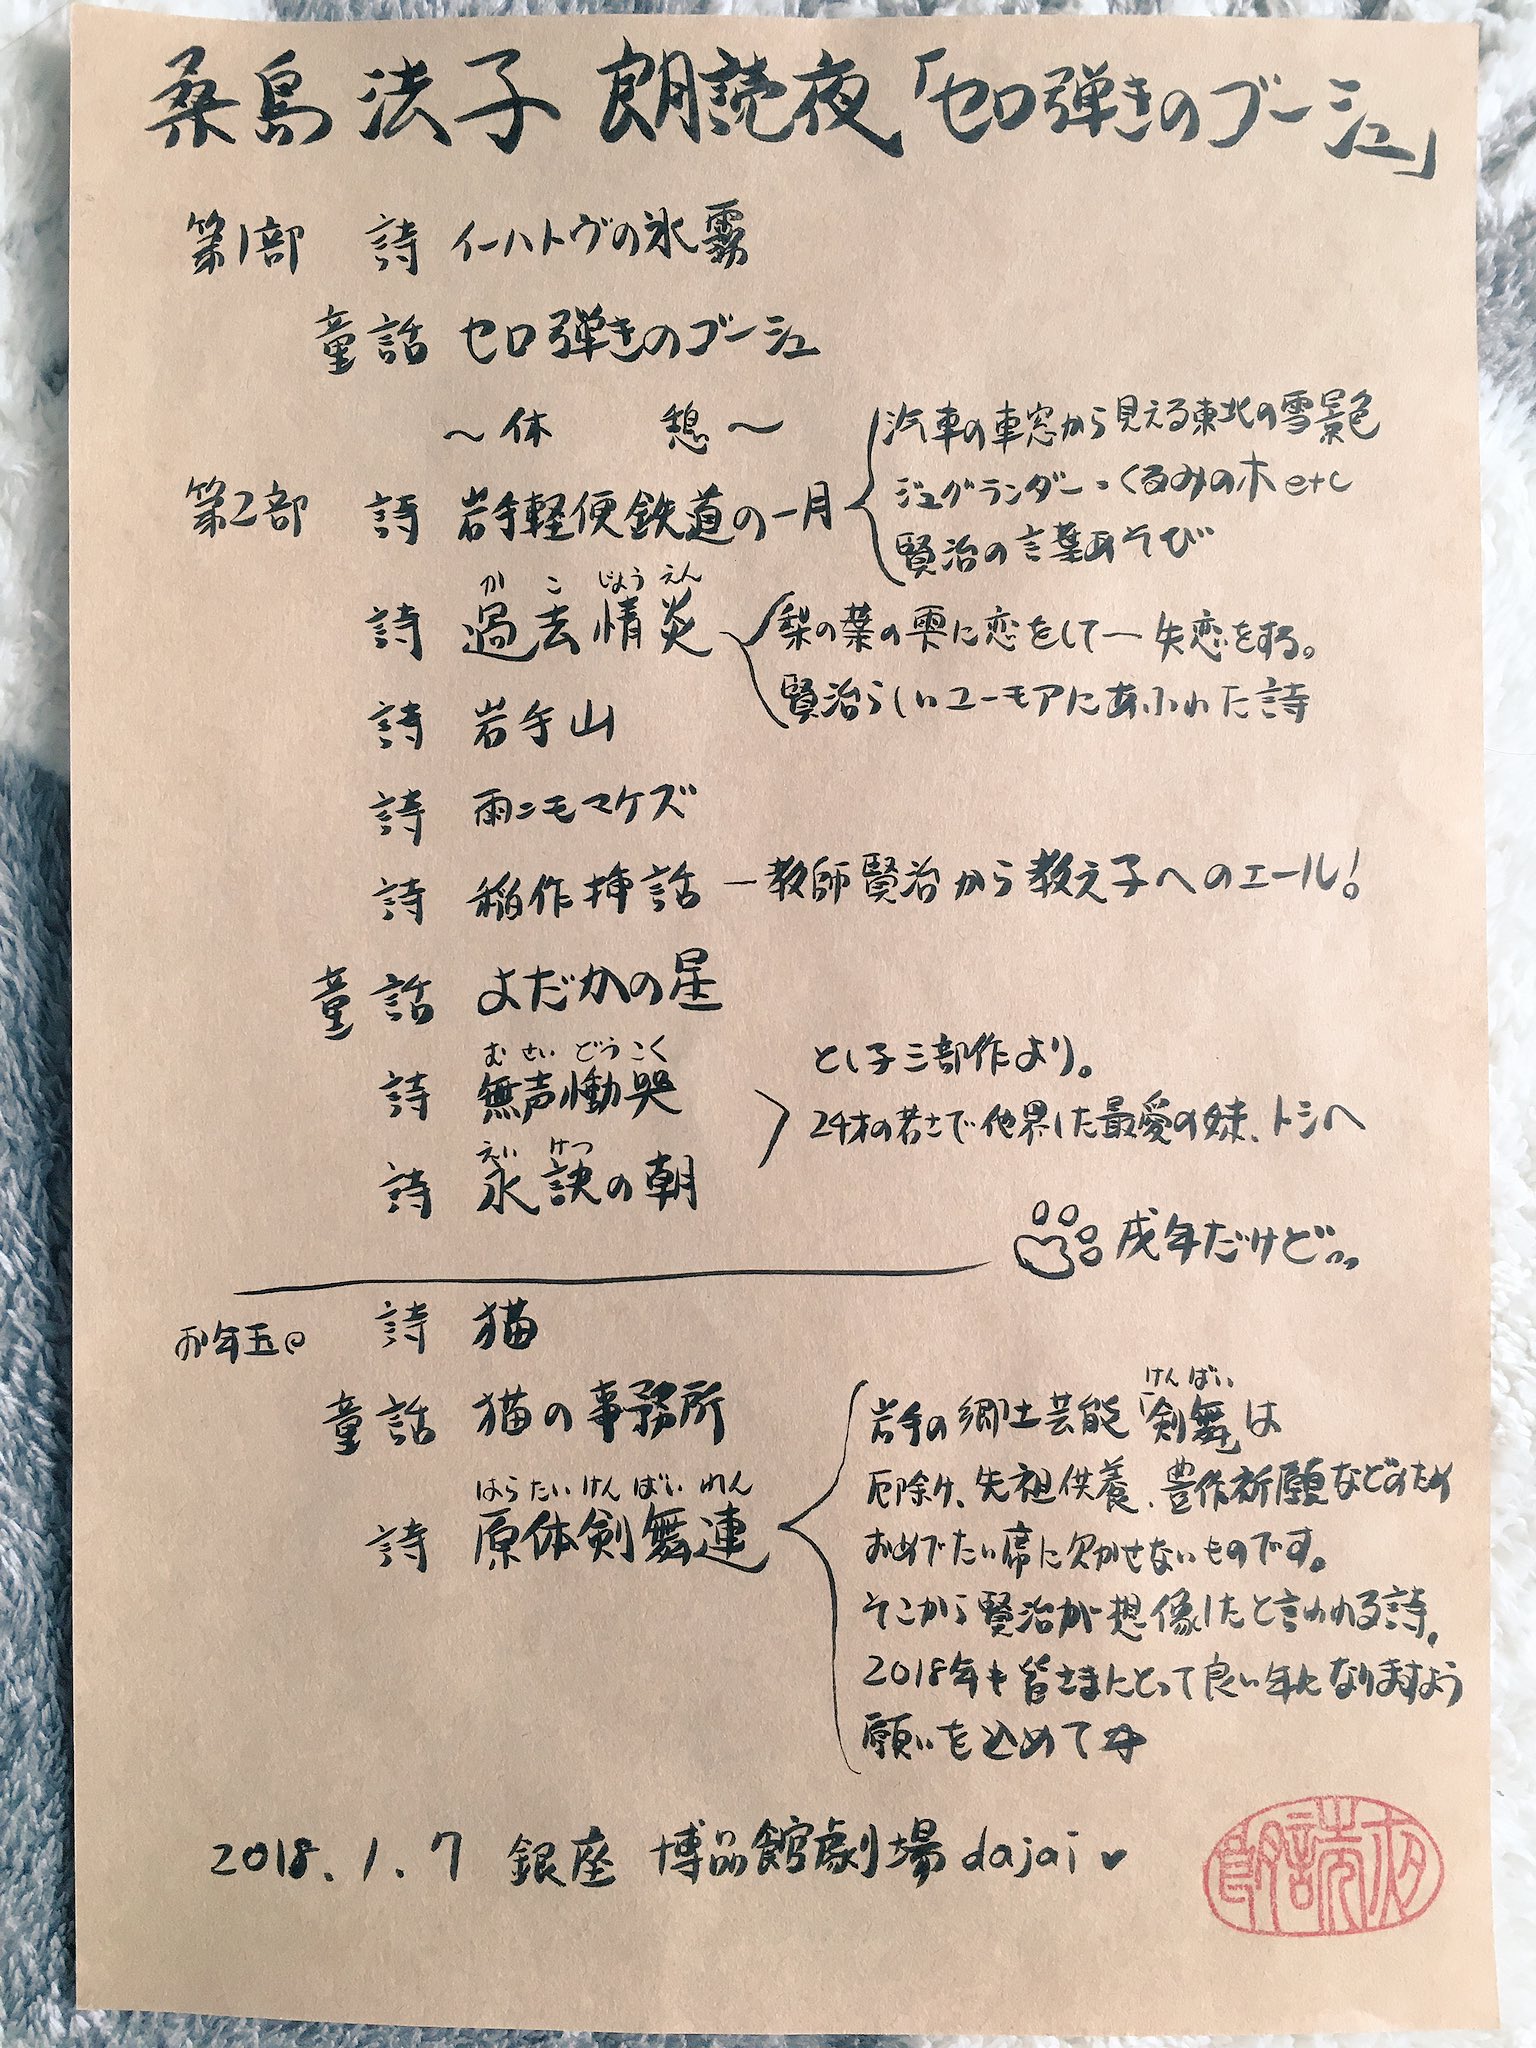 桑島法子 朗読夜「セロ弾きのゴーシュ」
第1部 詩 イーハトヴの氷霧
童話 セロ弾きのゴーシュ
～休 憩～
第2部 詩 岩手軽便鉄道の一月
汽車の車窓から見える東北の雪景色
ジュグランダー・くるみの木etc
賢治の言葉あそび
かこじょうえん
詩 過去情炎
梨の葉の雫に恋をして―失恋をする。
賢治らしいユーモアにあふれた詩
詩 岩手山
詩 雨ニモマケズ
詩 稲作挿話 ―教師賢治から教え子へのエール!
童話 よだかの星
むせいどうこく
詩 無声慟哭
えいけつ
詩 永訣の朝
とし子三部作より。
24才の若さで他界した最愛の妹、トシへ
戌年だけど…
お年玉 詩 猫
童話 猫の事務所
はらたいけんばいれん
詩 原体剣舞連
けんばい
岩手の郷土芸能「剣舞」は
厄除け、先祖供養、豊作祈願などのため
おめでたい席に欠かせないものです。
そこから賢治が想像したと言われる詩。
2018年も皆さまにとって良い年になりますよう
願いを込めて
2018.1.7 銀座 博品館劇場 dajai♥
朗読夜